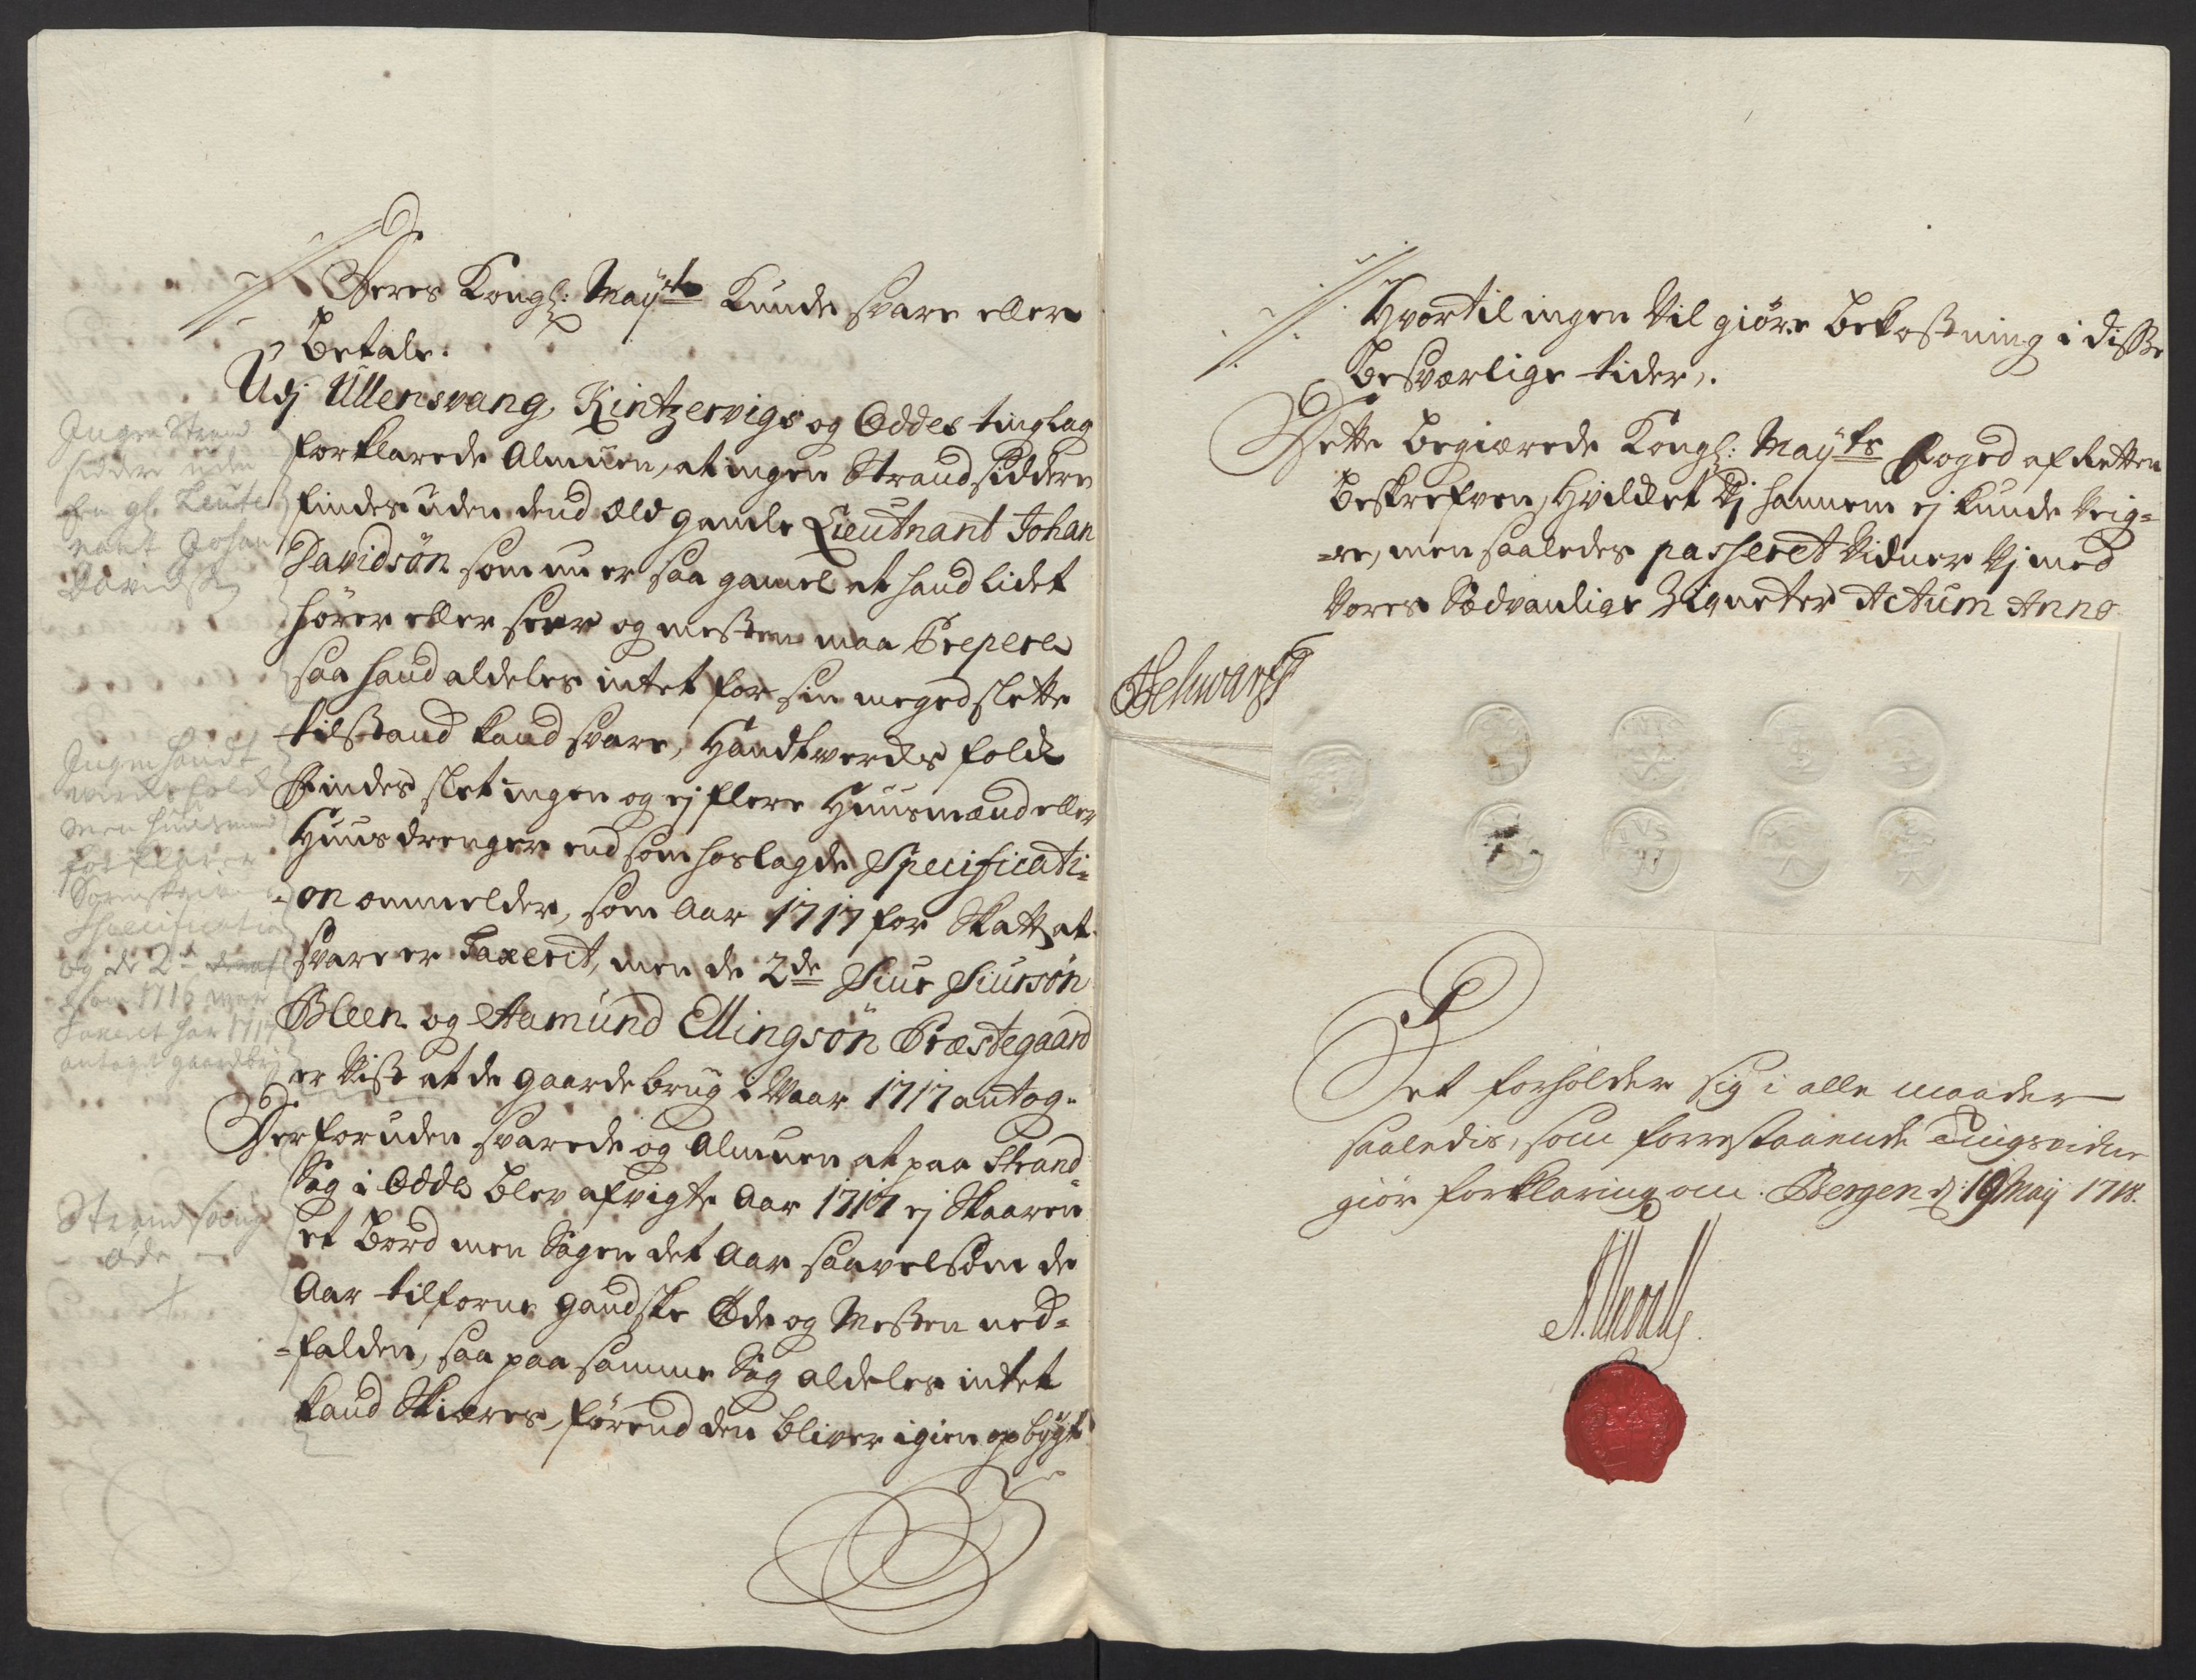 Deres Kongl: Mayts Kunde svare eller
betale.
Udj Ullensvang, Kintzervigs og Oddes tinglag
forklarede Almuen, at ingen Strandsiddere
findes uden dend Old gamle Lieutnant Johan
Davidsøn som nu er saa gamel at hand lidet
hører eller seer og mesten maa Crepere
saa hand aldeles intet for sin meged slette
tilstand kand svare, Handtverks folk
Findes slet ingen og ej flere Huusmænd eller
Huusdrenger end som hoslagde Specificati-
-on ommelder, som Aar 1717 for Skatt at
svare er Taxerit, men de 2de Siur Siursøn
Bleen og Aamund Ellingsøn Præstegaard
er Vist at de gaardebrug i Vaar 1717 antog.
Derforuden svarede og Almuen at paa Strand
Sag i Odde blev afvigte Aar 1717 ej Skaaren
et bord men Sagen det Aar saavelsom de
Aar tilforne gandske Øde og Mesten ned-
-falden, saa paa samme Sag aldeles intet
kand Skiæres, førend den bliver igien opbygt
Ingen Strand
siddere uden
gl. Leute
nant Johan
Davids
Ingen handt
verks folk
men huusmænd
forklarer
Sorenskriv
Specification
og de 2de
som 1716 var
Taxerit har 1717
antaget gaardbrug
Strand Saug
øde
Hvortil ingen Vil giøre bekostning i disse
besværlige tider.
Dette begiærede Kongl: Mayts Foged af Retten
beskrefven, Hvilket Vj hannem ej kunde Veig-
-re, men saaledes passeret Vidner Vj med
Vores Sædvanlige Zigneter Actum Anno
Schwartz
Det forholder sig i alle maader
saaledis, som forrestaaende Tingsvidne
giør forklaring om. Bergen d: 19 Maij 1718.